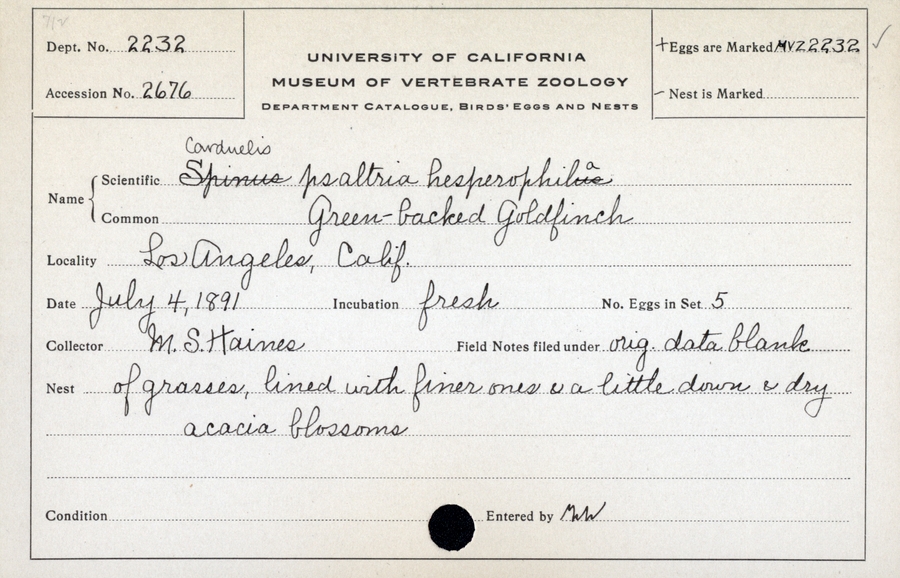 712
Dept. No. 2232
Accession No. 2676
UNIVERSITY OF CALIFORNIA
MUSEUM OF VERTEBRATE ZOOLOGY
DEPARTMENT CATALOGUE, BIRDS' EGGS AND NESTS
+ Eggs are Marked MVZ2232 ✓
– Nest is Marked
Carduelis
Name
Scientific Spinus psaltria hesperophilus a
Common Green-backed Goldfinch
Locality Los Angeles, Calif.
Date July 4, 1891 Incubation fresh No. Eggs in Set 5
Collector M. S. Haines Field Notes filed under orig. data blank
Nest of grasses, lined with finer ones & a little down & dry
acacia blossoms
Condition Entered by